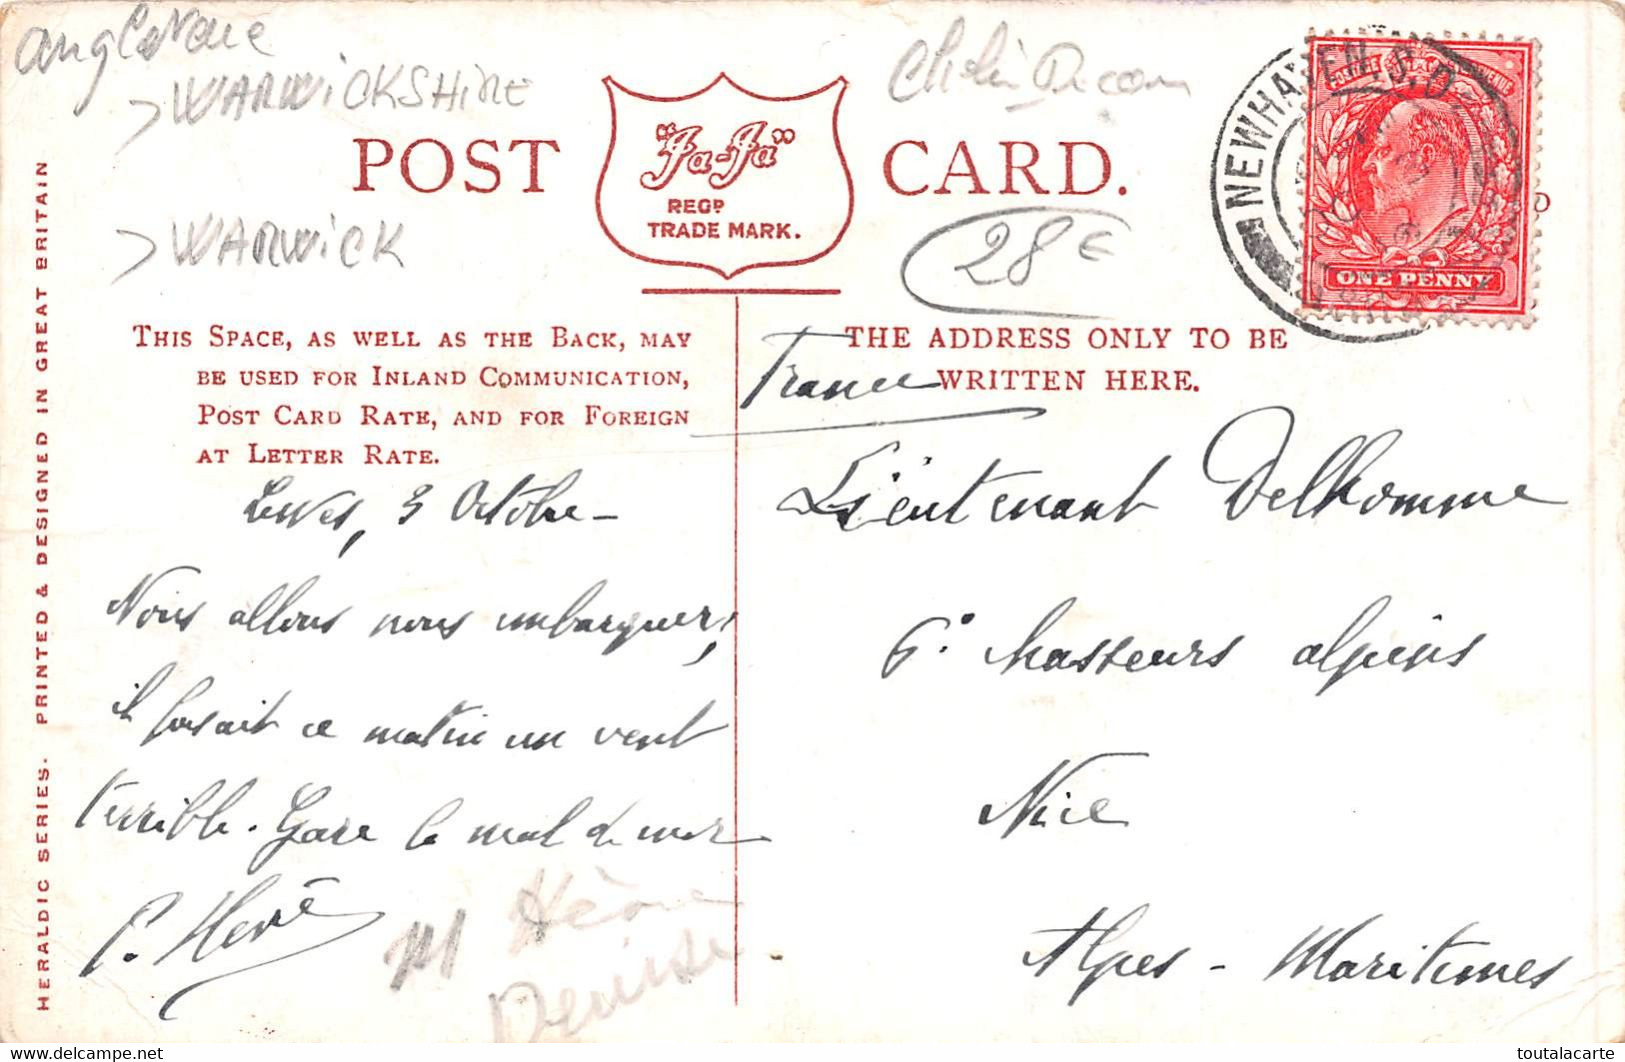 Angleterre
> WARWICKSHIRE
> WARWICK
28 €
POST CARD.
"Ja-Ja"
REGD
TRADE MARK.
NEWHAVEN. S.O
ONE PENNY
HERALDIC SERIES. PRINTED & DESIGNED IN GREAT BRITAIN
THIS SPACE, AS WELL AS THE BACK, MAY
BE USED FOR INLAND COMMUNICATION,
POST CARD RATE, AND FOR FOREIGN
AT LETTER RATE.
Lewes, 3 Octobre -
Nous allons nous embarquer,
il faisait ce matin un vent
terrible. Gare le mal de mer
P. Hervé
THE ADDRESS ONLY TO BE
WRITTEN HERE.
France
Lieutenant Delhomme
6e chasseurs alpins
Nice
Alpes - Maritimes
toutalacarte